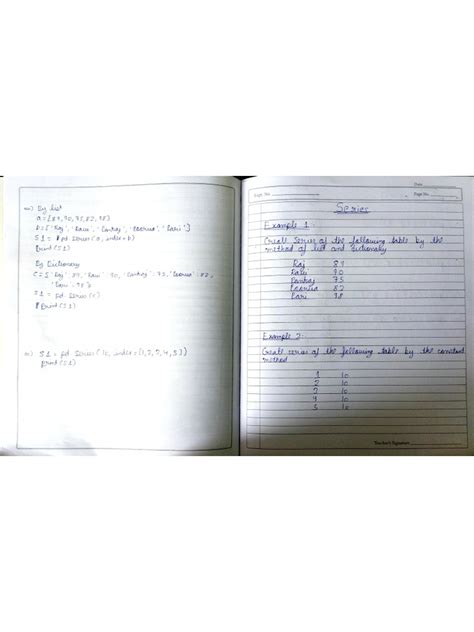 => By list
a = [89, 90, 75, 82, 98]
b = ['Raj', 'Ravi', 'Pankaj', 'Poorva', 'Pari']
S1 = pd series (a, index = b)
Print (S1)
By Dictionary
S1 = pd series (c)
Print (S1)
=> S1 = pd series (10, index = [1, 2, 3, 4, 5])
print (S1)
Date
Expt. No.
Page No.
Series
Example 1
Create series of the following table by the
method of list and dictionary
Raj 89
Ravi 90
Pankaj 75
Poorva 82
Pari 98
Example 2
Create series of the following table by the constant
method
1 10
2 10
3 10
4 10
5 10
Teacher's Signature